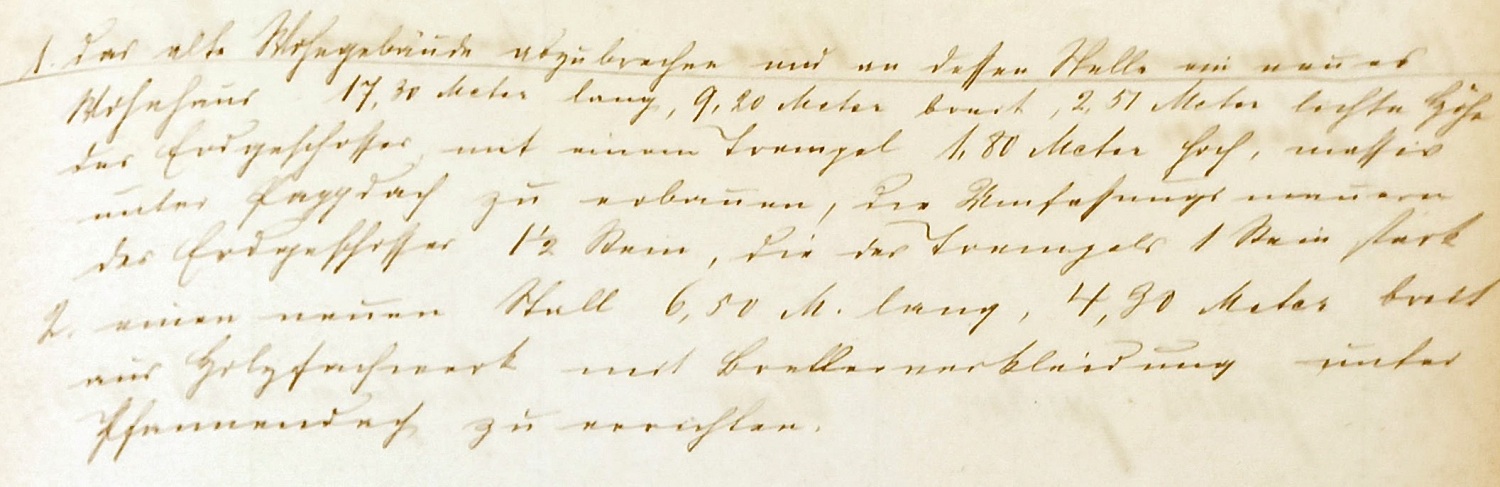 1. das alte Wohngebäude abzubrechen und an dessen Stelle ein neues
Wohnhaus 17,30 Meter lang, 9,20 Meter breit, 2,51 Meter lichte Höhe
des Erdgeschosses, mit einem Trempel 1,80 Meter hoch, massiv
unter Pappdach zu erbauen, die Umfassungsmauern
des Erdgeschosses 1½ Stein, die des Trempels 1 Stein stark
2. einen neuen Stall 6,50 M. lang, 4,30 Meter breit
aus Holzfachwerk mit Bretterverkleidung unter
Pfannendach zu errichten.